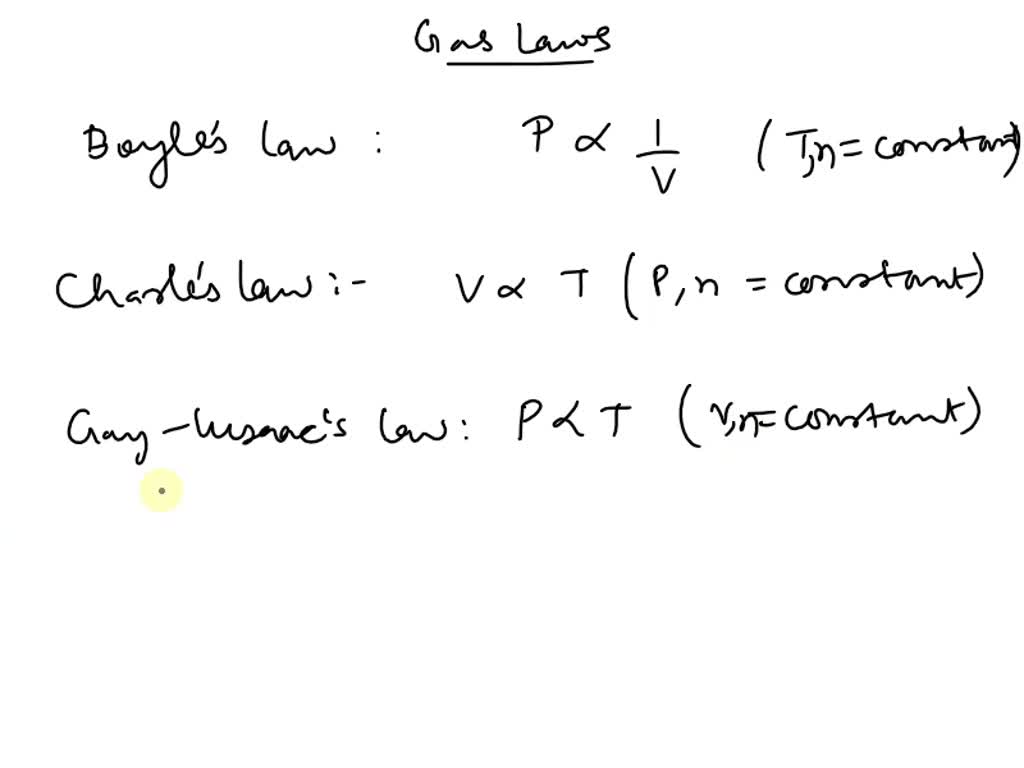 Gas Laws
Boyle's law : P ∝ 1/V (T,n = constant)
Charle's law :- V ∝ T (P, n = constant)
Gay-lussac's law : P ∝ T (V,n = constant)